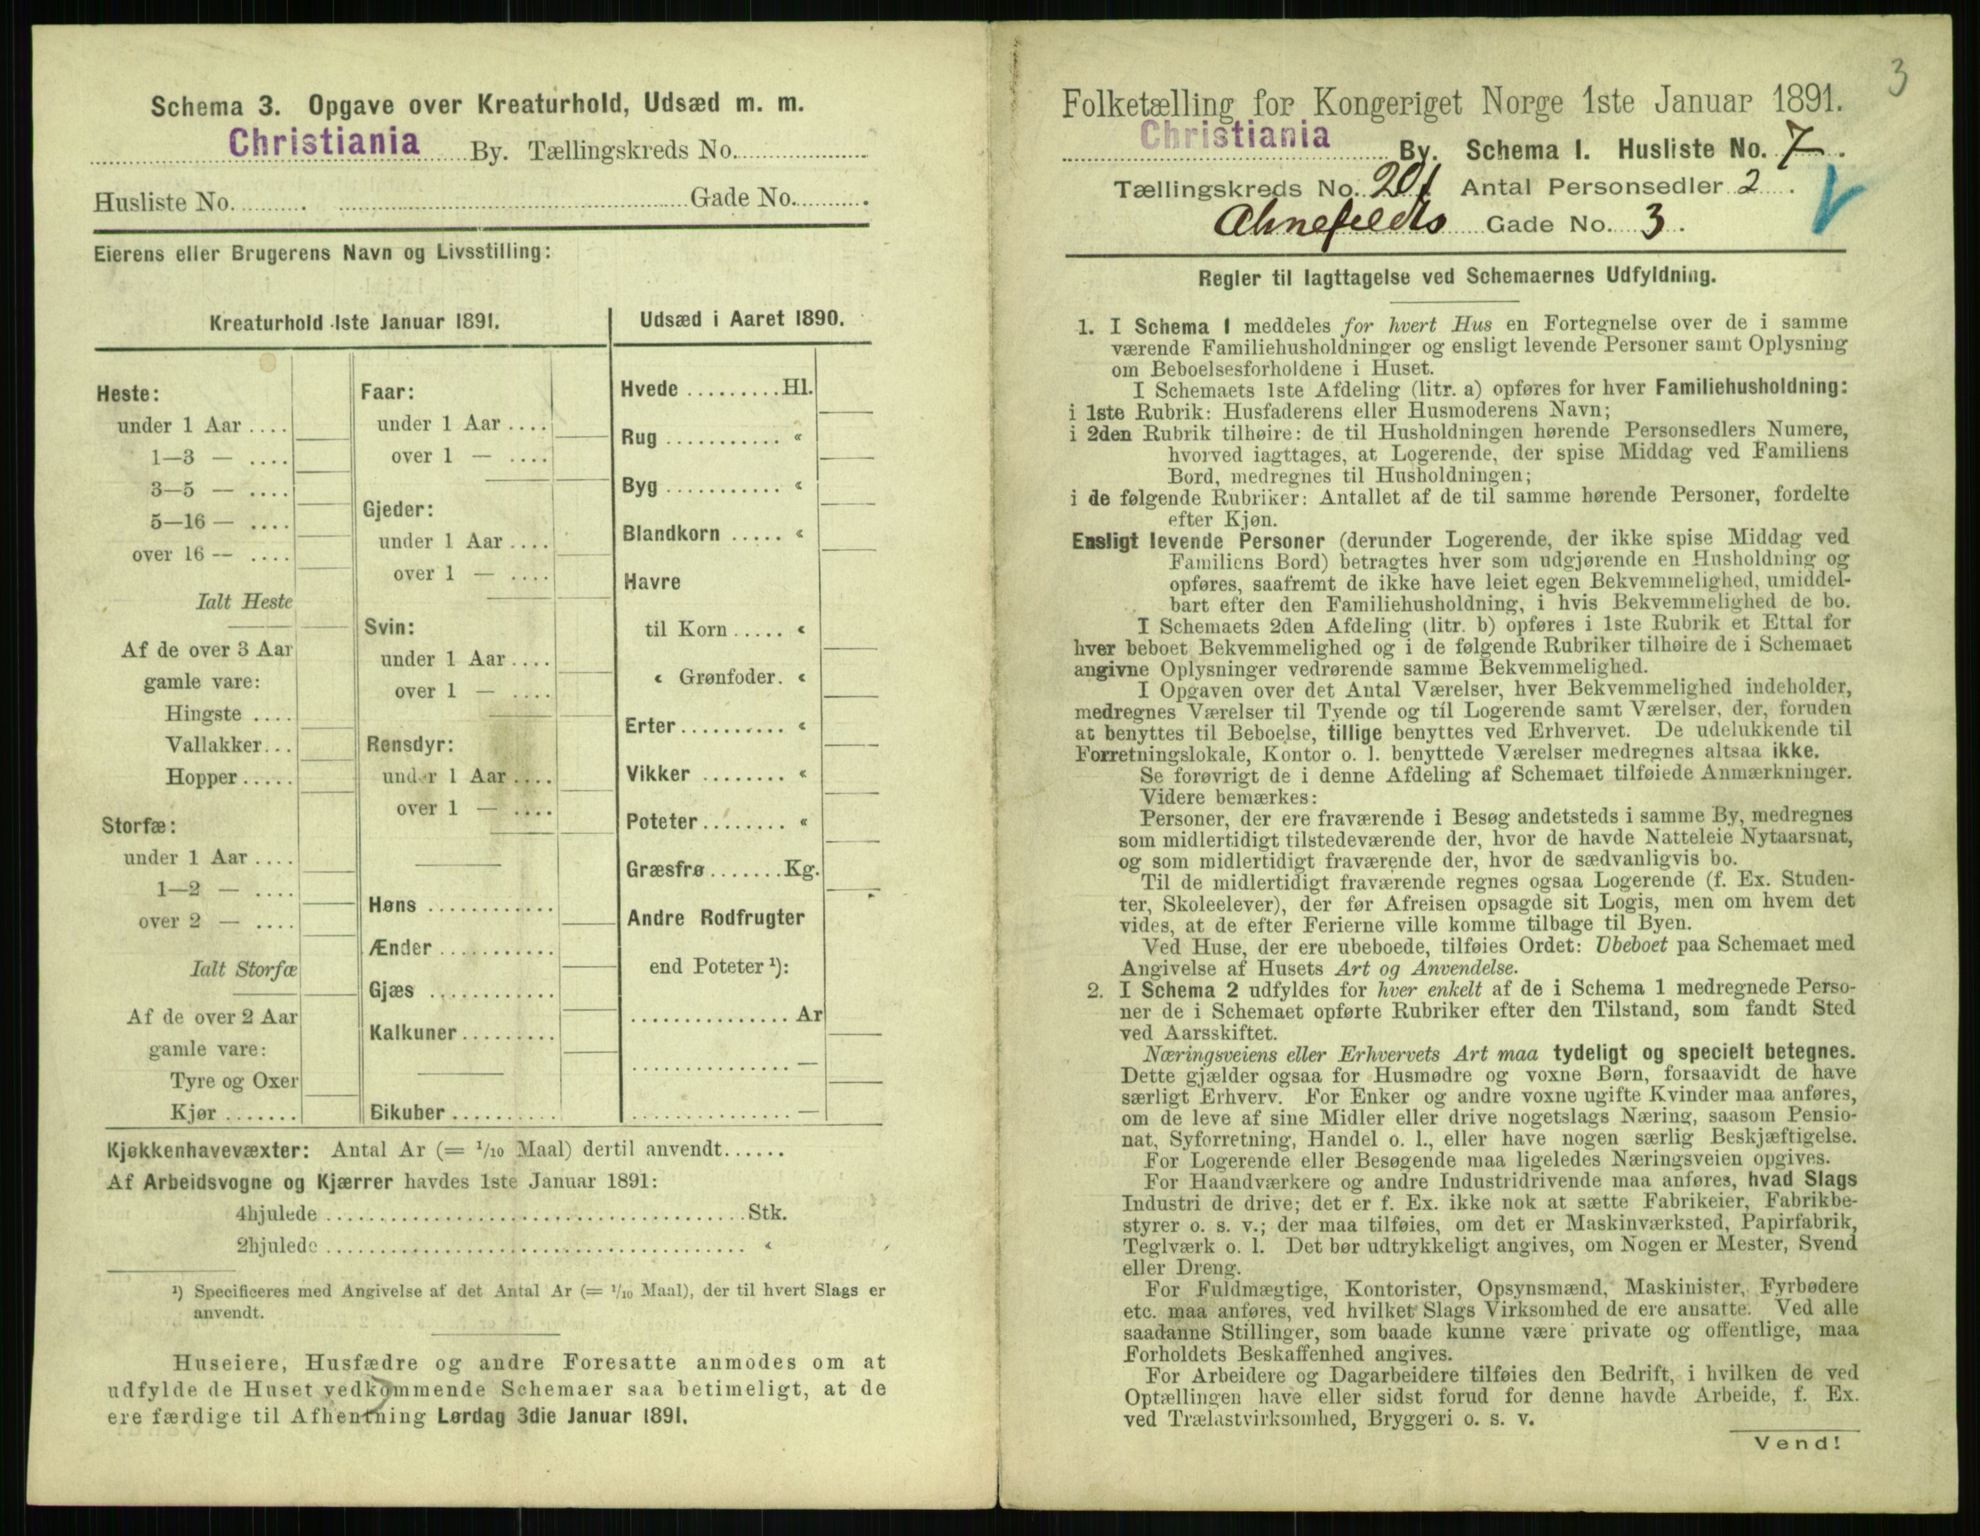 Schema 3. Opgave over Kreaturhold, Udsæd m. m.
Christiania By. Tællingskreds No.
Husliste No. Gade No.
Eierens eller Brugerens Navn og Livsstilling:
Kreaturhold 1ste Januar 1891.
Heste:
under 1 Aar ....
1—3 — ....
3—5 — ....
5—16 — ....
over 16 — ....
Ialt Heste
Af de over 3 Aar
gamle vare:
Hingste ....
Vallakker...
Hopper.....
Storfæ:
under 1 Aar ....
1—2 — ....
over 2 — ....
Ialt Storfæ
Af de over 2 Aar
gamle vare:
Tyre og Oxer
Kjør .......
Faar:
under 1 Aar ....
over 1 — ....
Gjeder:
under 1 Aar ....
over 1 — ....
Svin:
under 1 Aar ....
over 1 — ....
Rensdyr:
under 1 Aar ....
over 1 — ....
Høns ............
Ænder ...........
Gjæs ............
Kalkuner.........
Bikuber..........
Udsæd i Aaret 1890.
Hvede .........Hl.
Rug ........... «
Byg ........... «
Blandkorn ..... «
Havre
til Korn ..... «
« Grønfoder. «
Erter.......... «
Vikker ........ «
Poteter........ «
Græsfrø.......Kg.
Andre Rodfrugter
end Poteter ¹):
...............Ar
...............—
...............—
Kjøkkenhavevæxter: Antal Ar (= 1/10 Maal) dertil anvendt......
Af Arbeidsvogne og Kjærrer havdes 1ste Januar 1891:
4hjulede .....................................Stk.
2hjulede ..................................... «
¹) Specificeres med Angivelse af det Antal Ar (= 1/10 Maal), der til hvert Slags er
anvendt.
Huseiere, Husfædre og andre Foresatte anmodes om at
udfylde de Huset vedkommende Schemaer saa betimeligt, at de
ere færdige til Afhentning Lørdag 3die Januar 1891.
3
Folketælling for Kongeriget Norge 1ste Januar 1891.
Christiania By. Schema I. Husliste No. 7.
Tællingskreds No. 201 Antal Personsedler 2.
Ahnefeldts Gade No. 3.
Regler til Iagttagelse ved Schemaernes Udfyldning.
1. I Schema 1 meddeles for hvert Hus en Fortegnelse over de i samme
værende Familiehusholdninger og ensligt levende Personer samt Oplysning
om Beboelsesforholdene i Huset.
I Schemaets 1ste Afdeling (litr. a) opføres for hver Familiehusholdning:
i 1ste Rubrik: Husfaderens eller Husmoderens Navn;
i 2den Rubrik tilhøire: de til Husholdningen hørende Personsedlers Numere,
hvorved iagttages, at Logerende, der spise Middag ved Familiens
Bord, medregnes til Husholdningen;
i de følgende Rubriker: Antallet af de til samme hørende Personer, fordelte
efter Kjøn.
Ensligt levende Personer (derunder Logerende, der ikke spise Middag ved
Familiens Bord) betragtes hver som udgjørende en Husholdning og
opføres, saafremt de ikke have leiet egen Bekvemmelighed, umiddel-
bart efter den Familiehusholdning, i hvis Bekvemmelighed de bo.
I Schemaets 2den Afdeling (litr. b) opføres i 1ste Rubrik et Ettal for
hver beboet Bekvemmelighed og i de følgende Rubriker tilhøire de i Schemaet
angivne Oplysninger vedrørende samme Bekvemmelighed.
I Opgaven over det Antal Værelser, hver Bekvemmelighed indeholder,
medregnes Værelser til Tyende og til Logerende samt Værelser, der, foruden
at benyttes til Beboelse, tillige benyttes ved Erhvervet. De udelukkende til
Forretningslokale, Kontor o. l. benyttede Værelser medregnes altsaa ikke.
Se forøvrigt de i denne Afdeling af Schemaet tilføiede Anmærkninger.
Videre bemærkes:
Personer, der ere fraværende i Besøg andetsteds i samme By, medregnes
som midlertidigt tilstedeværende der, hvor de havde Natteleie Nytaarsnat,
og som midlertidigt fraværende der, hvor de sædvanligvis bo.
Til de midlertidigt fraværende regnes ogsaa Logerende (f. Ex. Studen-
ter, Skoleelever), der før Afreisen opsagde sit Logis, men om hvem det
vides, at de efter Ferierne ville komme tilbage til Byen.
Ved Huse, der ere ubeboede, tilføies Ordet: Ubeboet paa Schemaet med
Angivelse af Husets Art og Anvendelse.
2. I Schema 2 udfyldes for hver enkelt af de i Schema 1 medregnede Perso-
ner de i Schemaet opførte Rubriker efter den Tilstand, som fandt Sted
ved Aarsskiftet.
Næringsveiens eller Erhvervets Art maa tydeligt og specielt betegnes.
Dette gjælder ogsaa for Husmødre og voxne Børn, forsaavidt de have
særligt Erhverv. For Enker og andre voxne ugifte Kvinder maa anføres,
om de leve af sine Midler eller drive nogetslags Næring, saasom Pensio-
nat, Syforretning, Handel o. l., eller have nogen særlig Beskjæftigelse.
For Logerende eller Besøgende maa ligeledes Næringsveien opgives.
For Haandværkere og andre Industridrivende maa anføres, hvad Slags
Industri de drive; det er f. Ex. ikke nok at sætte Fabrikeier, Fabrikbe-
styrer o. s. v.; der maa tilføies, om det er Maskinværksted, Papirfabrik,
Teglværk o. l. Det bør udtrykkeligt angives, om Nogen er Mester, Svend
eller Dreng.
For Fuldmægtige, Kontorister, Opsynsmænd, Maskinister, Fyrbødere
etc. maa anføres, ved hvilket Slags Virksomhed de ere ansatte. Ved alle
saadanne Stillinger, som baade kunne være private og offentlige, maa
Forholdets Beskaffenhed angives.
For Arbeidere og Dagarbeidere tilføies den Bedrift, i hvilken de ved
Optællingen have eller sidst forud for denne havde Arbeide, f. Ex.
ved Trælastvirksomhed, Bryggeri o. s. v.
Vend!